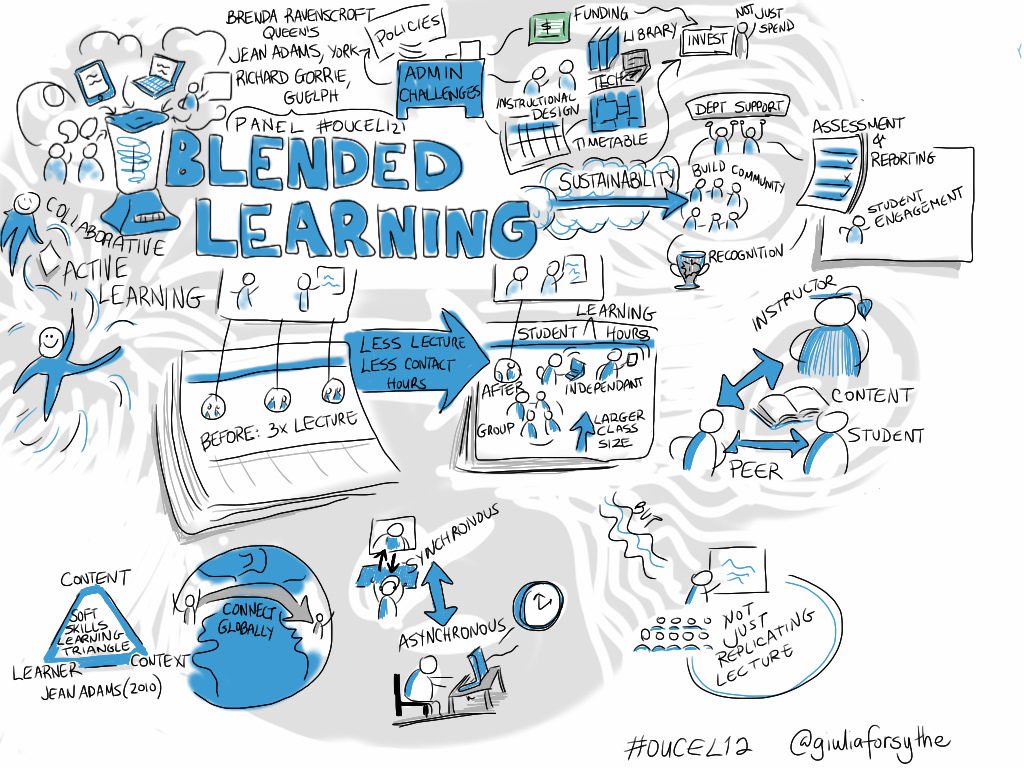 BRENDA RAVENSCROFT
QUEEN'S
JEAN ADAMS, YORK
RICHARD GORRIE,
GUELPH
PANEL #OUCEL121
POLICIES
ADMIN
CHALLENGES
FUNDING
LIBRARY
TECH
INSTRUCTIONAL
DESIGN
TIMETABLE
INVEST
NOT JUST
SPEND
DEPT SUPPORT
ASSESSMENT
&
REPORTING
STUDENT
ENGAGEMENT
BLENDED
LEARNING
SUSTAINABILITY
BUILD COMMUNITY
RECOGNITION
COLLABORATIVE
ACTIVE
LEARNING
BEFORE: 3x LECTURE
LESS LECTURE
LESS CONTACT
HOURS
LEARNING
STUDENT HOURS
AFTER
INDEPENDANT
GROUP
LARGER
CLASS
SIZE
INSTRUCTOR
CONTENT
STUDENT
PEER
CONTENT
SOFT
SKILLS
LEARNING
TRIANGLE
LEARNER
CONTEXT
JEAN ADAMS (2010)
CONNECT
GLOBALLY
SYNCHRONOUS
ASYNCHRONOUS
BUT
NOT
JUST
REPLICATING
LECTURE
#OUCEL12 @giuliaforsythe